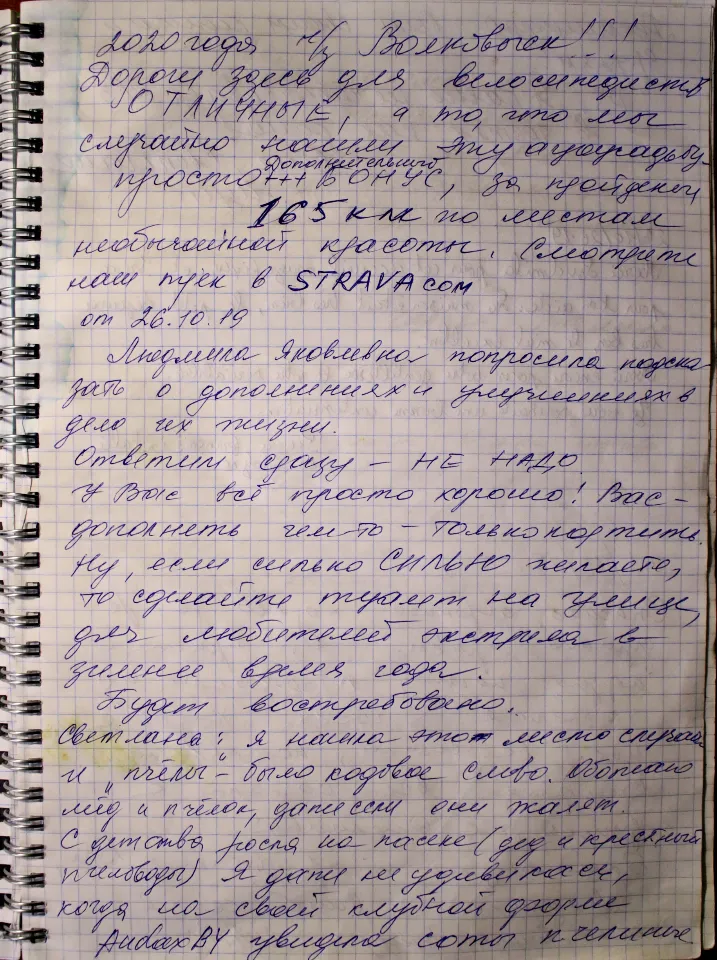 2020 года ч/з Волковыск!!!
Дороги здесь для велосипедистов
ОТЛИЧНЫЕ, а то, что мы
случайно нашли эту агроусадьбу -
просто +++ Дополнительного БОНУС, за пройденый
165 км по местам
необычайной красоты. Смотрите
наш трек в STRAVA com
от 26.10.19
Людмила Яковлевна попросила подска
зать о дополнениях и улучшениях в
дело их жизни.
Ответим сразу - НЕ НАДО
У Вас всё просто хорошо! Вас -
дополнять чем-то - только портить.
Ну, если сильно СИЛЬНО желаете,
то сделайте туалет на улице,
для любителей экстрима в
зимнее время года.
Будет востребовано.
Светлана: я нашла это место случайно
и "пчёлы" - было кодовое слово. Обожаю
мёд и пчёлок, даже если они жалят.
С детства росла на пасеке (дед и крестный
пчеловоды) Я даже не удивилась,
когда на своей клубной форме
AudaxBY увидела соты пчелиные